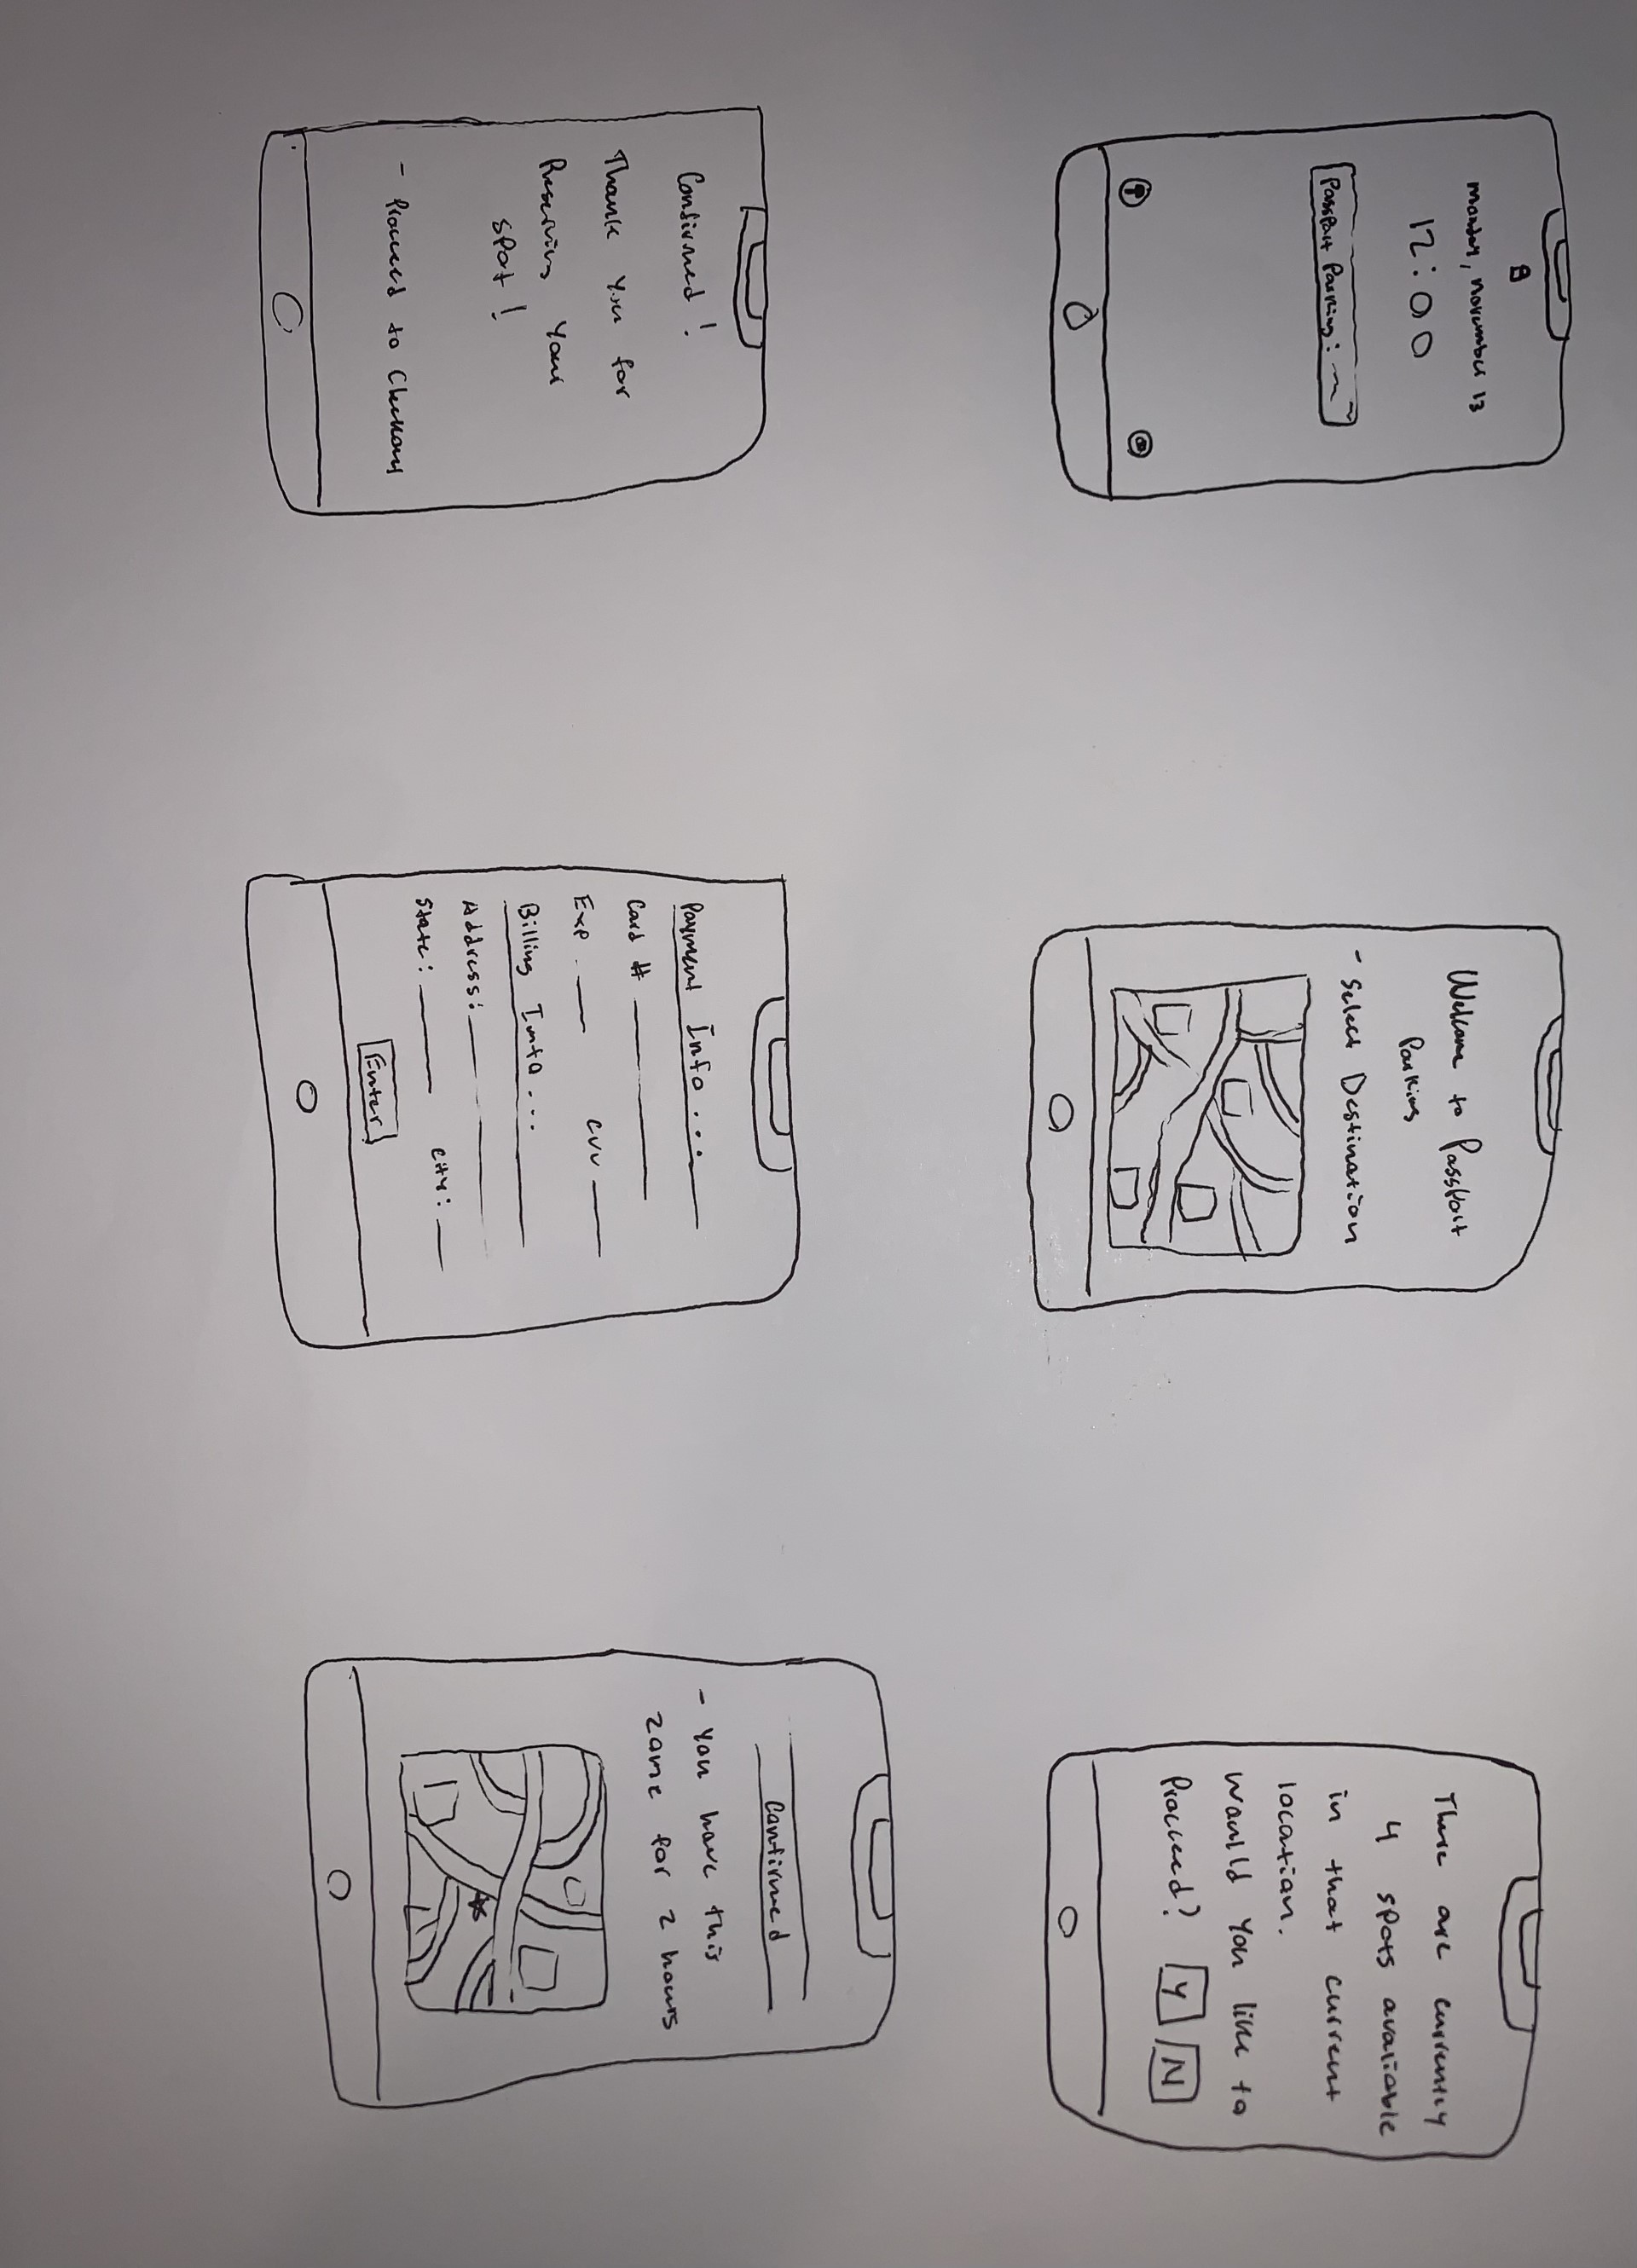 Monday, November 13
12:00
Passport Parking:
Welcome to Passport
Parking
- Select Destination
There are currently
4 spots avaliable
in that current
location.
Would you like to
Proceed? Y N
Confirmed!
Thank you for
Reserving Your
Spot!
- Proceed to Checkout
Payment Info...
Card #
Exp. CVV
Billing Info...
Address:
State: City:
Enter
Confirmed
- You have this
zone for 2 hours